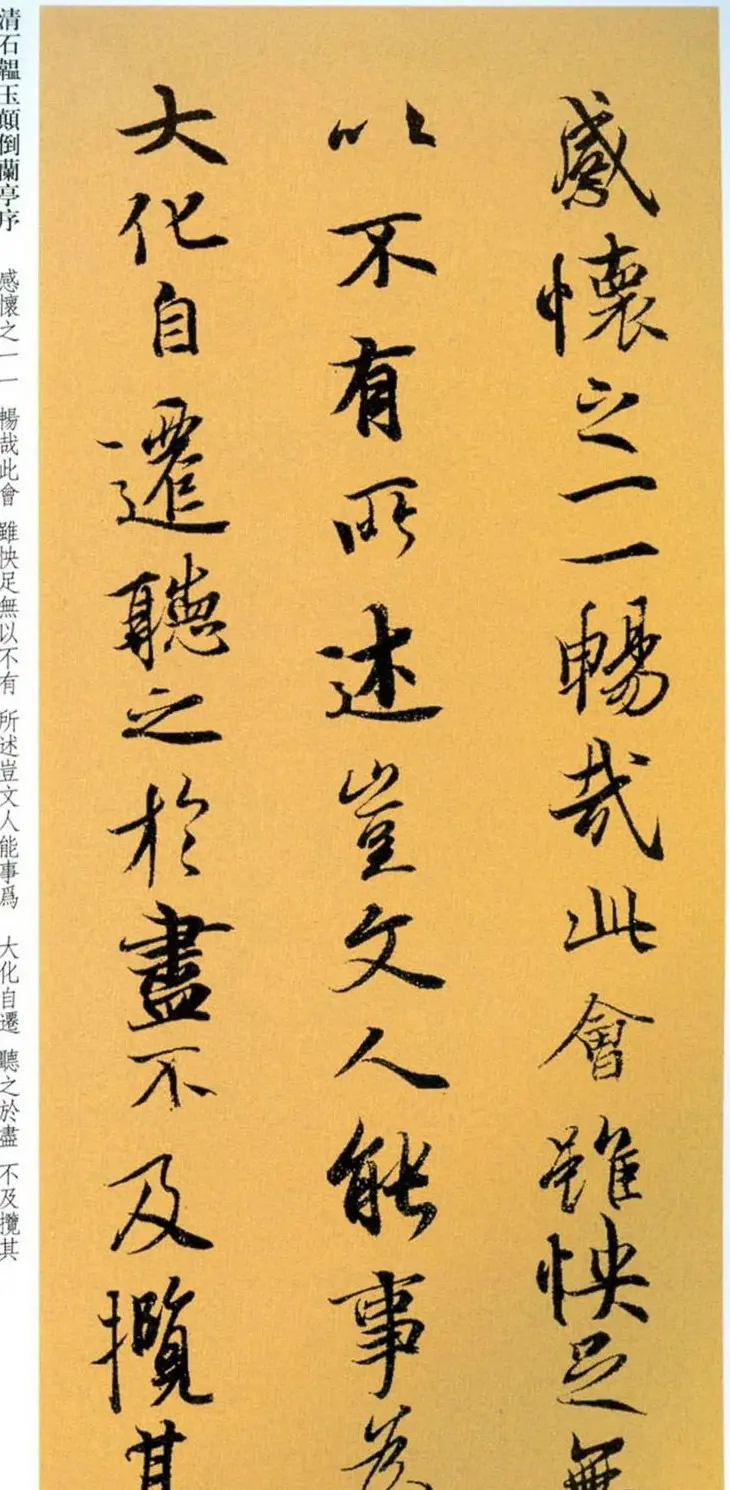 感懷之一一暢哉此會雖怏足無
以不有所述豈文人能事為
大化自遷聽之於盡不及攬其
清石韞玉顛倒蘭亭序 感懷之一一 暢哉此會 雖怏足無以不有 所述豈文人能事爲 大化自遷 聽之於盡 不及攬其